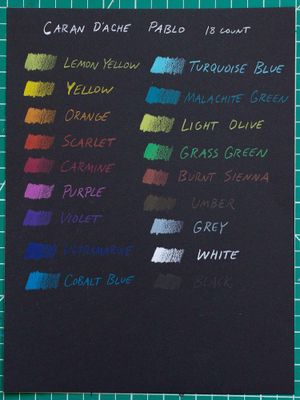 CARAN D'ACHE PABLO 18 COUNT
LEMON YELLOW
YELLOW
ORANGE
SCARLET
CARMINE
PURPLE
VIOLET
ULTRAMARINE
COBALT BLUE
TURQUOISE BLUE
MALACHITE GREEN
LIGHT OLIVE
GRASS GREEN
BURNT SIENNA
UMBER
GREY
WHITE
BLACK